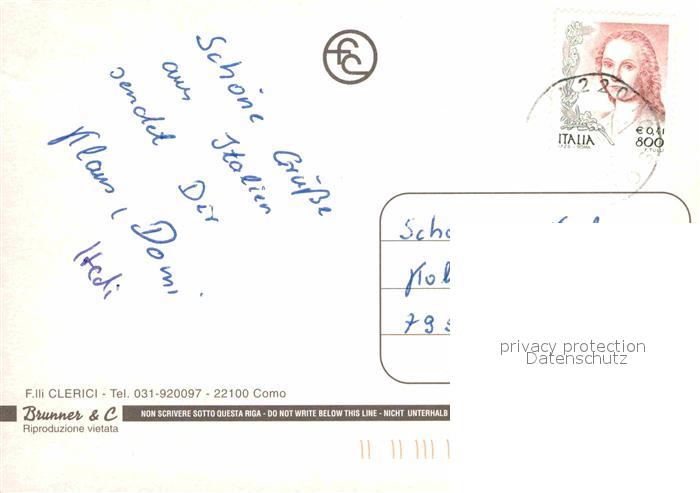 Schöne Grüße
aus Italien
sendet Dir
Klaus, Domi
Hedi
fc
220
€ 0,41
800
ITALIA
Scho
Kol
79
privacy protection
Datenschutz
F.lli CLERICI - Tel. 031-920097 - 22100 Como
Brunner & C
NON SCRIVERE SOTTO QUESTA RIGA - DO NOT WRITE BELOW THIS LINE - NICHT UNTERHALB
Riproduzione vietata